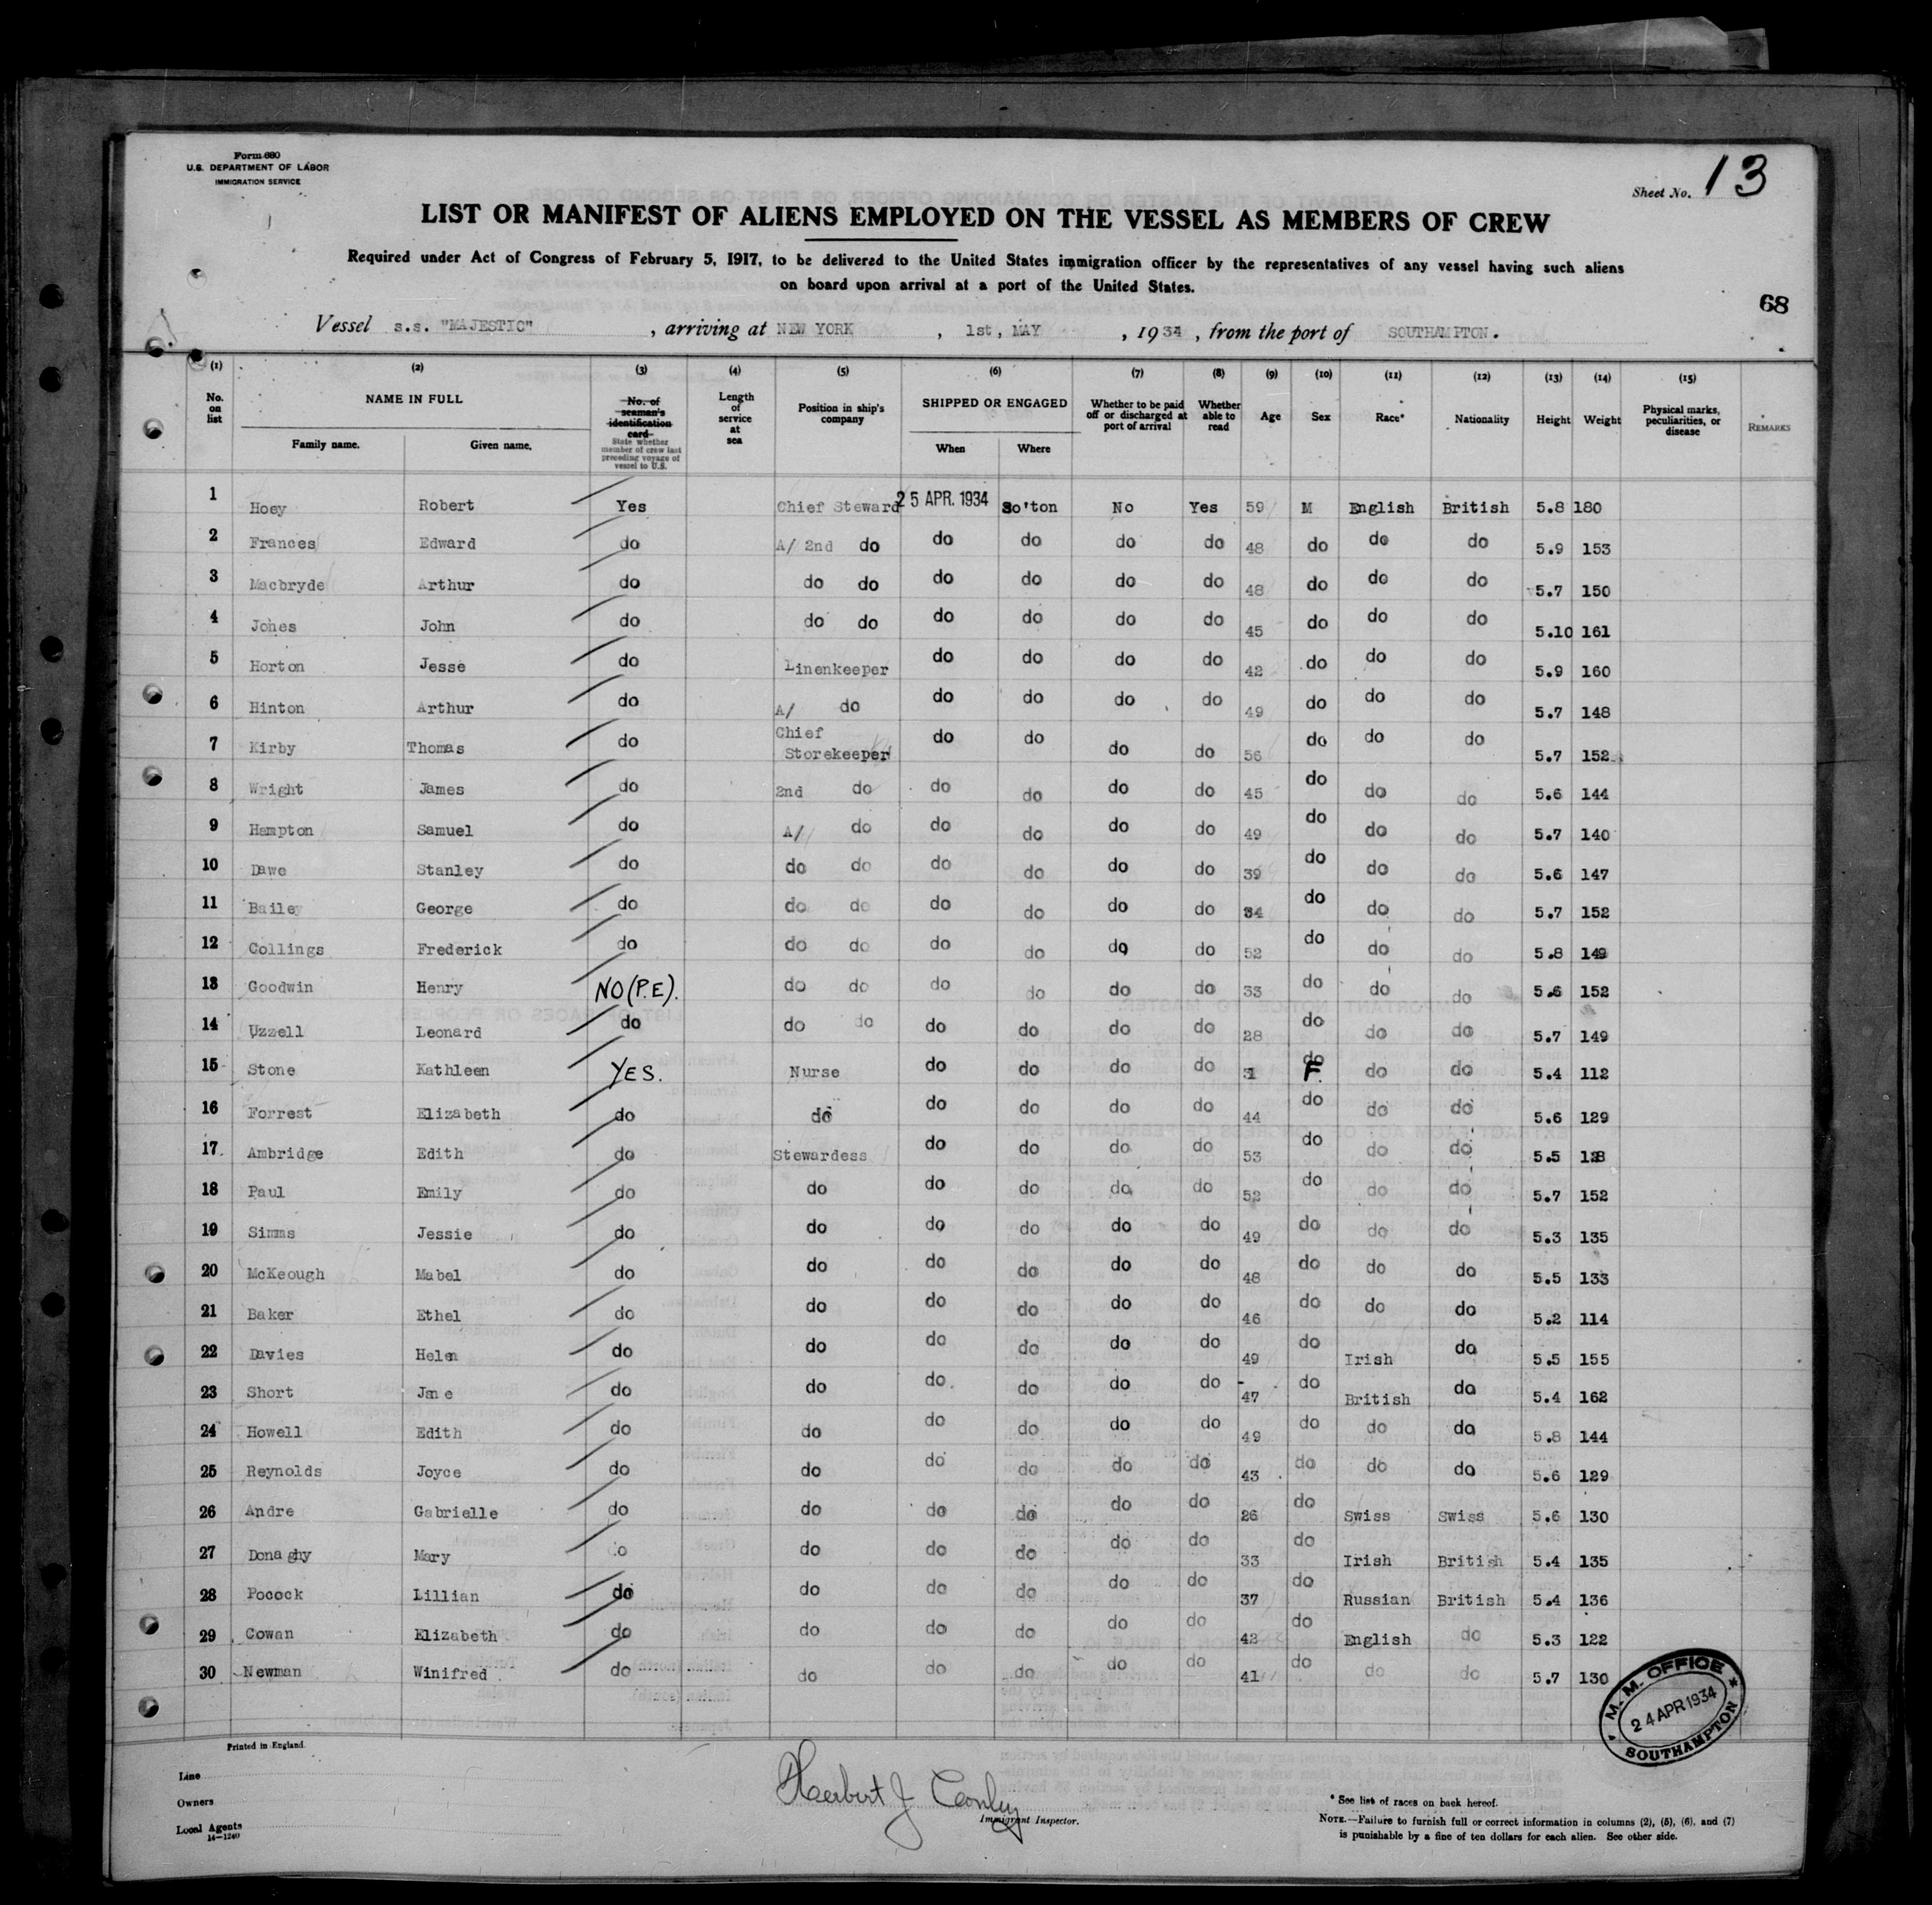 Form 680
U.S. DEPARTMENT OF LABOR
IMMIGRATION SERVICE
Sheet No. 13
LIST OR MANIFEST OF ALIENS EMPLOYED ON THE VESSEL AS MEMBERS OF CREW
Required under Act of Congress of February 5, 1917, to be delivered to the United States immigration officer by the representatives of any vessel having such aliens
on board upon arrival at a port of the United States.
68
Vessel s.s. "MAJESTIC" , arriving at NEW YORK , 1st, MAY , 1934 , from the port of SOUTHAMPTON.
(1) (2) (3) (4) (5) (6) (7) (8) (9) (10) (11) (12) (13) (14) (15)
No. on list NAME IN FULL Family name. Given name. No. of seaman's identification card State whether member of crew last preceding voyage of vessel to U.S. Length of service at sea Position in ship's company SHIPPED OR ENGAGED When Where Whether to be paid off or discharged at port of arrival Whether able to read Age Sex Race* Nationality Height Weight Physical marks, peculiarities, or disease REMARKS
1 Hoey Robert Yes Chief Steward 25 APR. 1934 So'ton No Yes 59 M English British 5.8 180
2 Frances Edward do A/ 2nd do do do do do 48 do do do 5.9 153
3 Macbryde Arthur do do do do do do do 48 do do do 5.7 150
4 Jones John do do do do do do do 45 do do do 5.10 161
5 Horton Jesse do Linenkeeper do do do do 42 do do do 5.9 160
6 Hinton Arthur do A/ do do do do do 49 do do do 5.7 148
7 Kirby Thomas do Chief Storekeeper do do do do 56 do do do 5.7 152
8 Wright James do 2nd do do do do do 45 do do do 5.6 144
9 Hampton Samuel do A/ do do do do do 49 do do do 5.7 140
10 Dawe Stanley do do do do do do do 39 do do do 5.6 147
11 Bailey George do do do do do do do 34 do do do 5.7 152
12 Collings Frederick do do do do do do do 52 do do do 5.8 149
13 Goodwin Henry NO (P.E). do do do do do do 33 do do do 5.6 152
14 Uzzell Leonard do do do do do do do 28 do do do 5.7 149
15 Stone Kathleen YES. Nurse do do do do 31 do F. do do 5.4 112
16 Forrest Elizabeth do do do do do do 44 do do do 5.6 129
17 Ambridge Edith do Stewardess do do do do 53 do do do 5.5
18 Paul Emily do do do do do do 52 do do do 5.7 152
19 Simms Jessie do do do do do do 49 do do do 5.3 135
20 McKeough Mabel do do do do do do 48 do do do 5.5 133
21 Baker Ethel do do do do do do 46 do do do 5.2 114
22 Davies Helen do do do do do do 49 do Irish do 5.5 155
23 Short Jane do do do do do do 47 do British do 5.4 162
24 Howell Edith do do do do do do 49 do do do 5.8 144
25 Reynolds Joyce do do do do do do 43 do do do 5.6 129
26 Andre Gabrielle do do do do do do 26 do Swiss Swiss 5.6 130
27 Donaghy Mary do do do do do do 33 do Irish British 5.4 135
28 Pocock Lillian do do do do do do 37 do Russian British 5.4 136
29 Cowan Elizabeth do do do do do do 42 do English do 5.3 122
30 Newman Winifred do do do do do do 41 do do do 5.7 130
M. M. OFFICE
24 APR 1934
SOUTHAMPTON
Printed in England.
Line
Owners
Local Agents
14-1240
Herbert J Conley
Immigrant Inspector.
* See list of races on back hereof.
NOTE.—Failure to furnish full or correct information in columns (2), (5), (6), and (7)
is punishable by a fine of ten dollars for each alien. See other side.